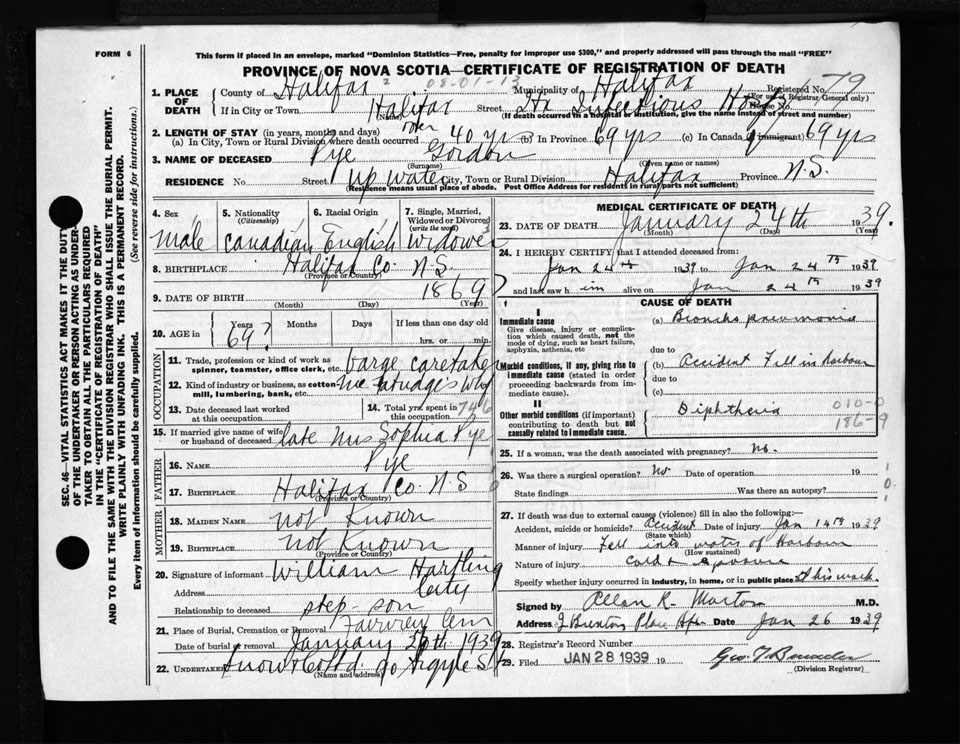 FORM 6
This form if placed in an envelope, marked "Dominion Statistics—Free, penalty for improper use $300," and properly addressed will pass through the mail "FREE"
PROVINCE OF NOVA SCOTIA—CERTIFICATE OF REGISTRATION OF DEATH
08-01-13
1. PLACE OF DEATH
County of Halifax Municipality of Halifax Registered No. 79
(For use of Registrar General only)
If in City or Town Halifax Street Hx Infectious Hosp House No.
(Name)
(If death occurred in a hospital or institution, give the name instead of street and number)
2. LENGTH OF STAY (in years, months and days)
(a) In City, Town or Rural Division where death occurred over 40 yrs (b) In Province 69 yrs (c) In Canada (if immigrant) 69 yrs
3. NAME OF DECEASED Pye Gordon
(Surname) (Given name or names)
RESIDENCE No. Street Up Water City, Town or Rural Division Halifax Province N.S.
(Residence means usual place of abode. Post Office Address for residents in rural parts not sufficient)
4. Sex Male
5. Nationality (Citizenship) Canadian
6. Racial Origin English
7. Single, Married, Widowed or Divorced (write the word) Widower
8. BIRTHPLACE Halifax Co. N.S.
(Province or Country)
9. DATE OF BIRTH 1869
(Month) (Day) (Year)
10. AGE in Years 69? Months Days If less than one day old
hrs. or min.
OCCUPATION
11. Trade, profession or kind of work as spinner, teamster, office clerk, etc. barge caretaker
12. Kind of industry or business, as cotton mill, lumbering, bank, etc.
13. Date deceased last worked at this occupation
14. Total yrs. spent in this occupation
746
15. If married give name of wife or husband of deceased late Mrs Sophia Pye
FATHER
16. NAME Pye
17. BIRTHPLACE Halifax Co. N.S
(Province or Country)
MOTHER
18. MAIDEN NAME Not Known
19. BIRTHPLACE Not Known
(Province or Country)
20. Signature of informant William Hartling
Address City
Relationship to deceased step-son
21. Place of Burial, Cremation or Removal Fairview Cem
Date of burial or removal January 26th. 1939
22. UNDERTAKER Snow & Co Ltd. 90 Argyle St
(Name and address)
MEDICAL CERTIFICATE OF DEATH
23. DATE OF DEATH January 24th 1939.
(Month) (Day) (Year)
24. I HEREBY CERTIFY that I attended deceased from:
Jan 24th 1939 to Jan 24th 1939
and last saw him alive on Jan 24th 1939
CAUSE OF DEATH
I
Immediate cause
Give disease, injury or complication which caused death, not the mode of dying, such as heart failure, asphyxia, asthenia, etc
(a) Broncho pneumonia
due to
Morbid conditions, if any, giving rise to immediate cause (stated in order proceeding backwards from immediate cause).
(b) Accident Fell in Harbour
due to
(c)
II
Other morbid conditions (if important) contributing to death but not causally related to immediate cause.
Diphtheria
010-0
186-9
25. If a woman, was the death associated with pregnancy? No.
26. Was there a surgical operation? No Date of operation 19
State findings Was there an autopsy?
27. If death was due to external causes (violence) fill in also the following:—
Accident, suicide or homicide? Accident Date of injury Jan 14th 1939
(State which)
Manner of injury Fell into waters of Harbour
(How sustained)
Nature of injury Cold & Exposure
Specify whether injury occurred in industry, in home, or in public place At his work.
Signed by Allan R. Morton M.D.
Address Jan 26 1939
28. Registrar's Record Number
29. Filed JAN 28 1939 19
(Division Registrar)
SEC. 46—VITAL STATISTICS ACT MAKES IT THE DUTY
OF THE UNDERTAKER OR PERSON ACTING AS UNDER-
TAKER TO OBTAIN ALL THE PARTICULARS REQUIRED
IN THE "CERTIFICATE OF REGISTRATION OF DEATH"
AND TO FILE THE SAME WITH THE DIVISION REGISTRAR WHO SHALL ISSUE THE BURIAL PERMIT.
WRITE PLAINLY WITH UNFADING INK. THIS IS A PERMANENT RECORD.
Every item of information should be carefully supplied. (See reverse side for instructions.)